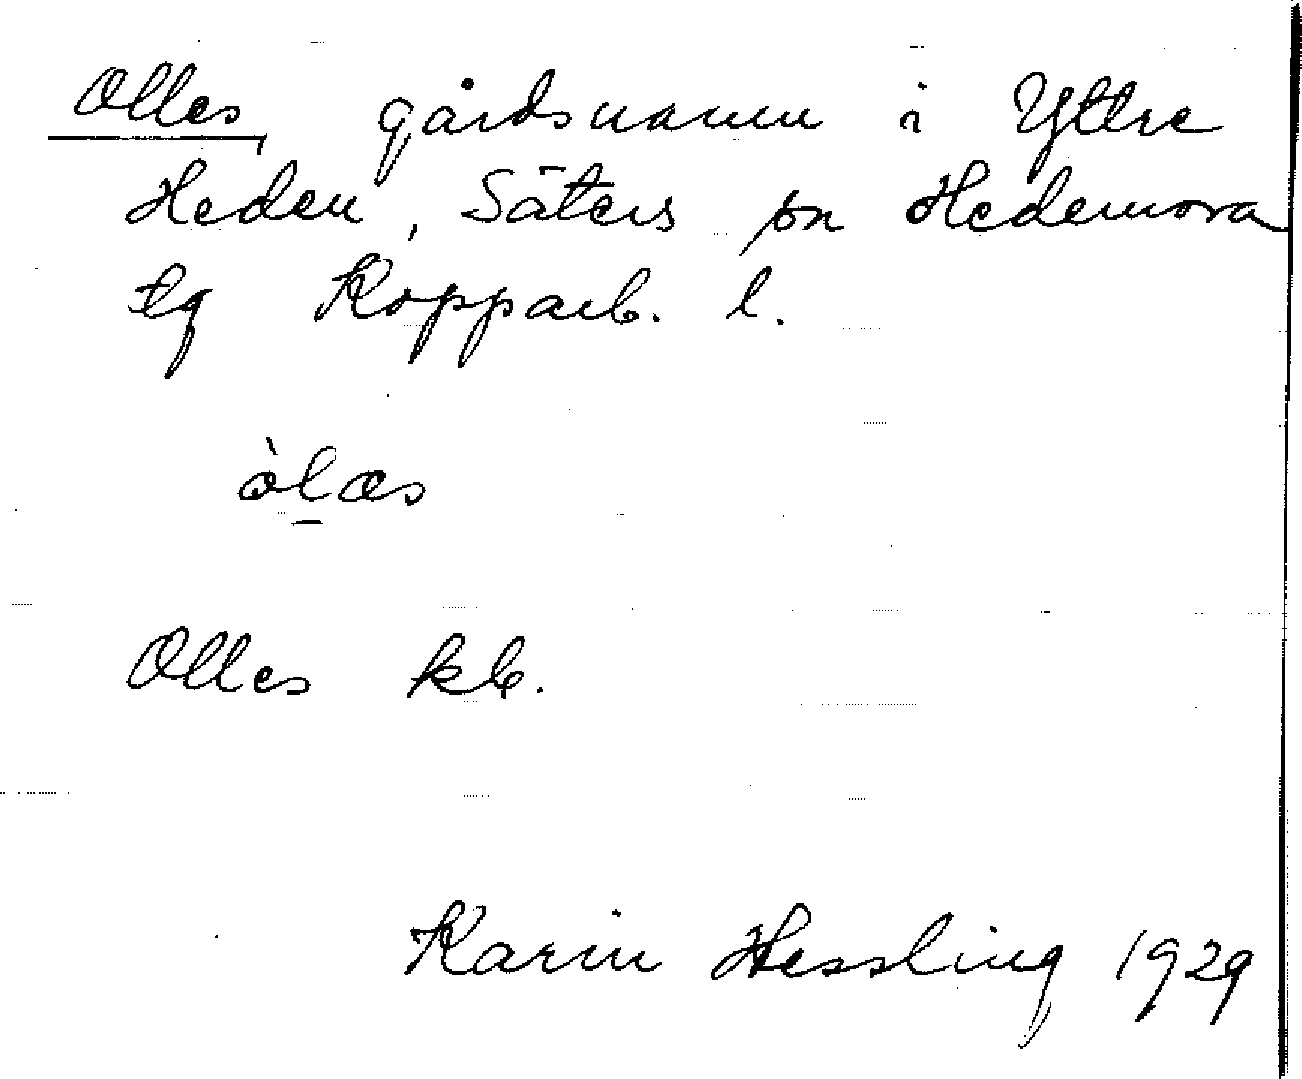 Olles, gårdsnamn i Yttre
Heden, Säters sn Hedemora
tg Kopparb. l.
òl̲æs
Olles kb.
Karin Hessling 1929